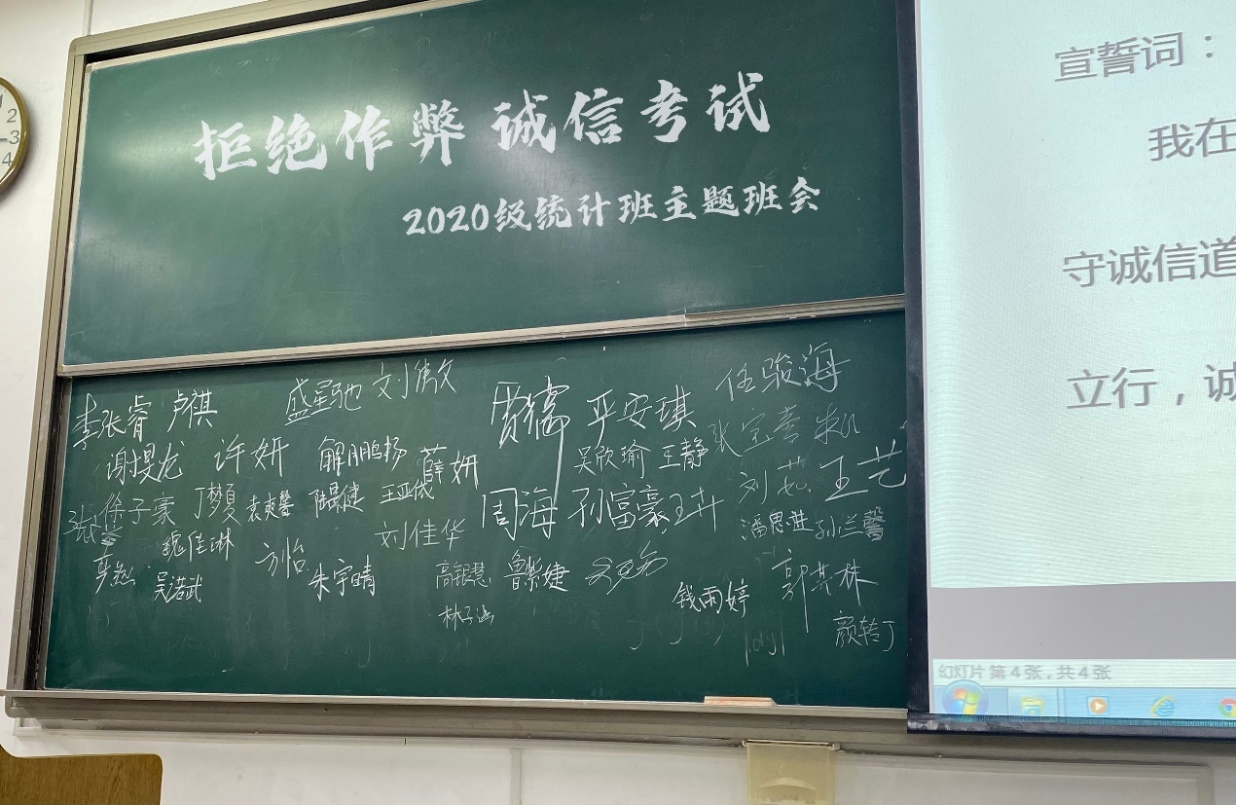 拒绝作弊 诚信考试
2020级统计班主题班会
李张睿 卢祺 盛星驰 刘傲文 贾儒 平安琪 任骏海
谢昊龙 许妍 解鹏杨 薛妍 吴欣瑜 王静 张宝善
徐子豪 丁颢 袁爽馨 陆晨健 周海 孙富豪 王卉 刘茹 王艺
魏佳琳 方怡 刘佳华 潘思进 孙兰馨
吴浩武 朱宇晴 高银慧 鲁紫婕 钱雨婷 郭其林
林子涵 颜转丁
宣誓词：
我在
守诚信道
立行，诚
幻灯片 第4张，共4张
2
3
4